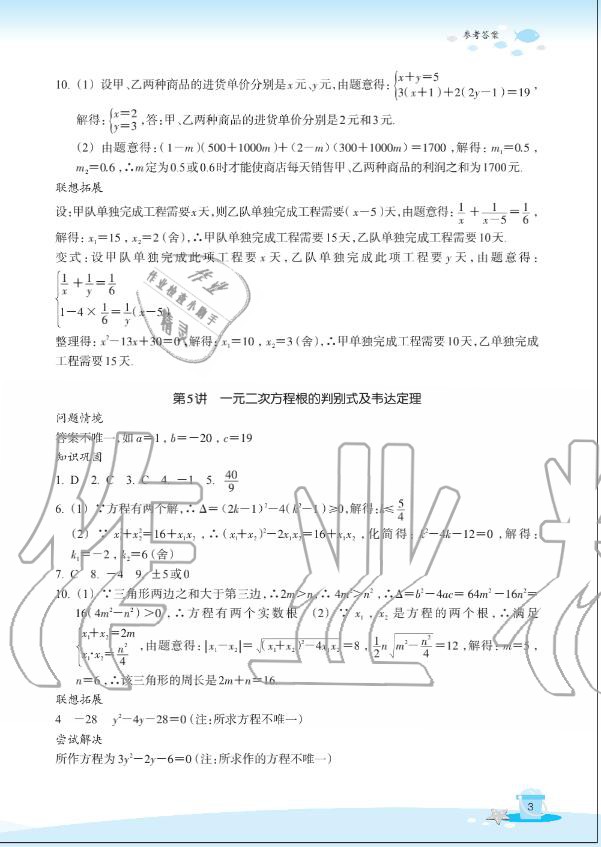 参考答案
10.（1）设甲、乙两种商品的进货单价分别是x元、y元,由题意得:{x+y=5 3(x+1)+2(2y-1)=19,
解得:{x=2 y=3,答:甲、乙两种商品的进货单价分别是2元和3元.
（2）由题意得:(1-m)(500+1000m)+(2-m)(300+1000m)=1700,解得:m₁=0.5,
m₂=0.6,∴m定为0.5或0.6时才能使商店每天销售甲、乙两种商品的利润之和为1700元.
联想拓展
设:甲队单独完成工程需要x天,则乙队单独完成工程需要(x-5)天,由题意得:1/x+1/(x-5)=1/6,
解得:x₁=15,x₂=2(舍),∴甲队单独完成工程需要15天,乙队单独完成工程需要10天.
变式:设甲队单独完成此项工程要x天,乙队单独完成此项工程要y天,由题意得:
{1/x+1/y=1/6
1-4×1/6=1/y(x-5)
整理得:x²-13x+30=0,解得:x₁=10,x₂=3(舍),∴甲单独完成工程需要10天,乙单独完成
工程需要15天.
第5讲 一元二次方程根的判别式及韦达定理
问题情境
答案不唯一,如a=1,b=-20,c=19
知识巩固
1. D 2. C 3. C 4. -1 5. 40/9
6.（1）∵方程有两个解,∴Δ=(2k-1)²-4(k²-1)≥0,解得:k≤5/4
（2）∵x₁²+x₂²=16+x₁x₂,∴(x₁+x₂)²-2x₁x₂=16+x₁x₂,化简得:k²-4k-12=0,解得:
k₁=-2,k₂=6(舍)
7. C 8. -4 9. ±5或0
10.（1）∵三角形两边之和大于第三边,∴2m>n,∴4m²>n²,∴Δ=b²-4ac=64m²-16n²=
16(4m²-n²)>0,∴方程有两个实数根（2）∵x₁,x₂是方程的两个根,∴满足
{x₁+x₂=2m x₁·x₂=n²/4,由题意得:|x₁-x₂|=√((x₁+x₂)²-4x₁x₂)=8,1/2n√(m²-n²/4)=12,解得:m=5,
n=6,∴该三角形的周长是2m+n=16.
联想拓展
4 -28 y²-4y-28=0(注:所求方程不唯一)
尝试解决
所作方程为3y²-2y-6=0(注:所求作的方程不唯一)
3
作业
作业检查小助手
精灵
作业